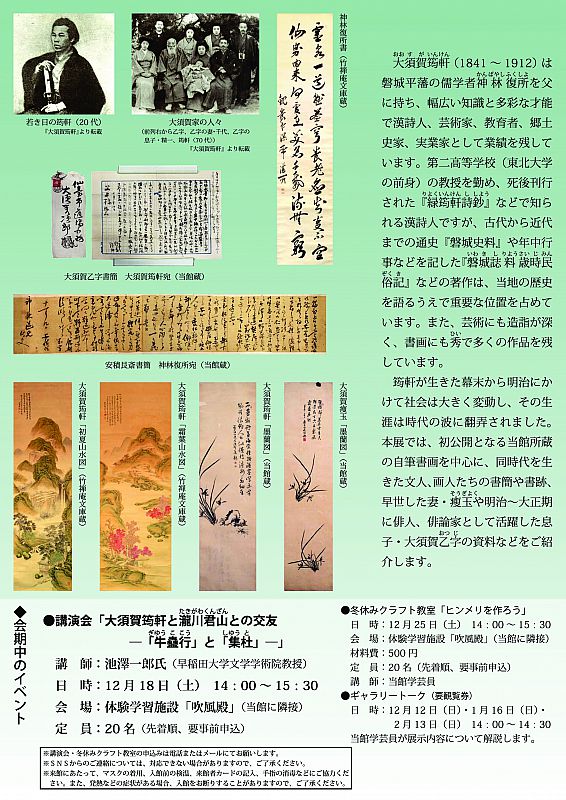 若き日の筠軒（20代）
『大須賀筠軒』より転載
大須賀家の人々
（前列右から乙字、乙字の妻・千代、乙字の
息子・精一、筠軒（70代））
『大須賀筠軒』より転載
神林復所書（竹禅庵文庫蔵）
大須賀乙字書簡　大須賀筠軒宛（当館蔵）
安積艮斎書簡　神林復所宛（当館蔵）
大須賀筠軒「初夏山水図」（竹禅庵文庫蔵）
大須賀筠軒「霜葉山水図」（竹禅庵文庫蔵）
大須賀筠軒「墨蘭図」（当館蔵）
大須賀痩玉「墨蘭図」（当館蔵）
大須賀筠軒（1841～1912）は
磐城平藩の儒学者神林復所を父
に持ち、幅広い知識と多彩な才能
で漢詩人、芸術家、教育者、郷土
史家、実業家として業績を残して
います。第二高等学校（東北大学
の前身）の教授を勤め、死後刊行
された『緑筠軒詩鈔』などで知ら
れる漢詩人ですが、古代から近代
までの通史『磐城史料』や年中行
事などを記した『磐城誌料歳時民
俗記』などの著作は、当地の歴史
を語るうえで重要な位置を占めて
います。また、芸術にも造詣が深
く、書画にも秀で多くの作品を残
しています。
筠軒が生きた幕末から明治にか
けて社会は大きく変動し、その生
涯は時代の波に翻弄されました。
本展では、初公開となる当館所蔵
の自筆書画を中心に、同時代を生
きた文人、画人たちの書簡や書跡、
早世した妻・痩玉や明治～大正期
に俳人、俳論家として活躍した息
子・大須賀乙字の資料などをご紹
介します。
◆会期中のイベント
●講演会「大須賀筠軒と瀧川君山との交友
―「牛蠱行」と「集杜」―」
講　師：池澤一郎氏（早稲田大学文学学術院教授）
日　時：12月18日（土）　14：00～15：30
会　場：体験学習施設「吹風殿」（当館に隣接）
定　員：20名（先着順、要事前申込）
●冬休みクラフト教室「ヒンメリを作ろう」
日　時：12月25日（土）　14：00～15：30
会　場：体験学習施設「吹風殿」（当館に隣接）
材料費：500円
定　員：20名（先着順、要事前申込）
講　師：当館学芸員
●ギャラリートーク（要観覧券）
日　時：12月12日（日）・1月16日（日）・
2月13日（日）　14：00～14：30
当館学芸員が展示内容について解説します。
※講演会・冬休みクラフト教室の申込みは電話またはメールにてお願いします。
※ＳＮＳからのご連絡については、対応できない場合がありますので、ご了承ください。
※来館にあたって、マスクの着用、入館前の検温、来館者カードの記入、手指の消毒などにご協力くだ
さい。また、発熱などの症状がある場合、入館をお断りすることがありますので、ご了承ください。